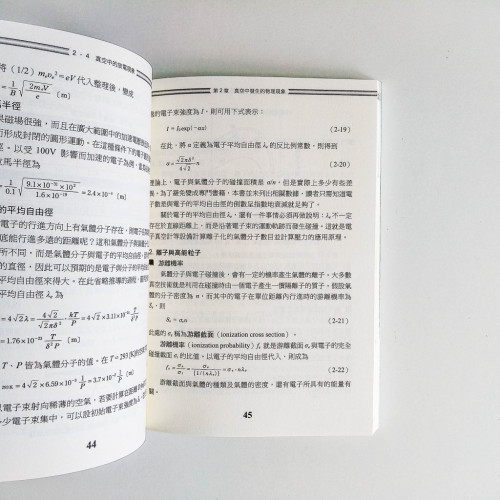 2‧4 真空中的放電現象
將 (1/2) mₑvₑ² = eV 代入整理後，變成
= 1/B √(2mₑV/e) (m)
馬半徑
果磁場很強，而且在廣大範圍中的加速電
而形成封閉的圓形運動，在這種條件下的電
徑，以受 100V 影響而加速的電子為例，
馬半徑為
= 1/0.1 √(9.1×10⁻³¹×10²/1.6×10⁻¹⁹) = 2.4×10⁻⁴ (m)
的平均自由徑
電子的行進方向上有氣體分子存在，則電子
底能行進多遠的距離呢？這和氣體分子與
所不同，而是氣體分子與電子的平均自由徑
的直徑，因此可以預期的是電子與分子的平均自
平均自由徑來得大，在此省略推導的過程，
平均自由徑 λₑ 為
= 4√2 λ = 4√2/(√2πδ²) · kT/P = 4×3.11×10⁻²⁴ T/(δ²P)
= 1.76×10⁻²³ T/(δ²P)
T、P 皆為氣體分子的值。在 T = 293 [K]
= 4√2×6.59×10⁻³ 1/P = 3.7×10⁻² 1/P (m)
電子束射向稀薄的空氣，若要計算在
少電子束集中，可以設初始電子束強度為
44
第 2 章 真空中發生的物理現象
的電子束強度為 I，則可用下式表示：
I = I₀exp(−αx) (2-19)
在此，將 α 定義為電子平均自由徑 λₑ 的反比例常數，則得到
α = √2πδ²/4√2 n (2-20)
理論上，電子與氣體分子的碰撞面積是 α/n，但是實際上多少有些差
異。為了避免變成專門書籍，本書並未列出相關數據，讀者只需知道電
子數是與電子的平均自由徑的倒數呈指數衰減就足夠了。
關於電子的平均自由徑 λₑ，還有一件事情必須再做說明：λₑ 不一定
存在於直線距離上，而是沿著電子束的運動軌跡而發生碰撞，這就是電
子真空計等設備計算離子化的氣體分子數目並計算壓力的應用原理。
2 離子與高能粒子
■ 游離機率
氣體分子與電子碰撞後，會有一定的機率產生氣體的離子。大多數
真空技術就是利用在碰撞時由一個電子產生一價陽離子的質子。假設氣
體的分子密度為 n，而其中的電子在單位距離內行進時的游離機率為
fₑ，則
Sₑ = σᵢn (2-21)
此處的 σᵢ 稱為游離截面（ionization cross section）。
游離機率（ionization probability）fₑ 就是游離截面 σᵢ 與電子的完全
碰撞截面 σₑ 的比值，以電子的平均自由徑代入，則成為
fₑ = σᵢ/σₑ = σᵢ/{1/(nλₑ)} = σᵢ·nλₑ (2-22)
游離截面與氣體的種類及氣體的密度，還有電子所具有的能量有
關。
45